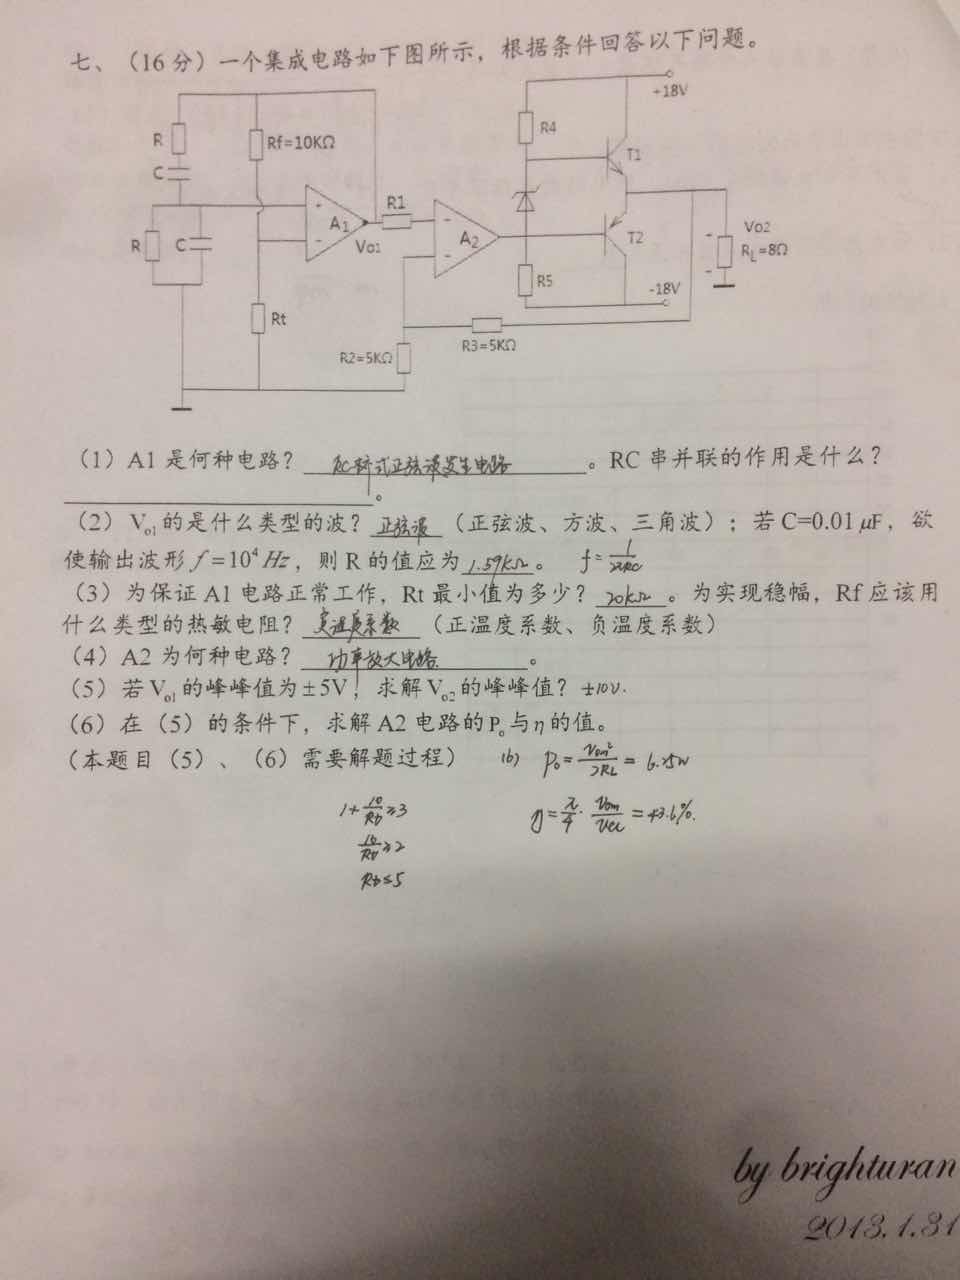 七、（16分）一个集成电路如下图所示，根据条件回答以下问题。
+18V
R
Rf=10KΩ
R4
T1
C
R1
+
A1
Vo1
-
+
A2
-
R
C
T2
Vo2
RL=8Ω
-
-
R5
-18V
Rt
R2=5KΩ
R3=5KΩ
（1）A1是何种电路？ RC桥式正弦波发生电路 。RC串并联的作用是什么？
。
（2）Vo1的是什么类型的波？ 正弦波 （正弦波、方波、三角波）；若C=0.01μF，欲
使输出波形 f=10⁴Hz，则R的值应为 1.59kΩ 。 f=1/2πRC
（3）为保证A1电路正常工作，Rt最小值为多少？ 20kΩ 。为实现稳幅，Rf应该用
什么类型的热敏电阻？ 负温度系数 （正温度系数、负温度系数）
（4）A2为何种电路？ 功率放大电路 。
（5）若Vo1的峰峰值为±5V，求解Vo2的峰峰值？ ±10V.
（6）在（5）的条件下，求解A2电路的Po与η的值。
（本题目（5）、（6）需要解题过程） (6) Po=Vom²/2RL=6.25W
1+10/Rt≥3
η=π/4·Vom/Vcc=43.6%.
10/Rt≥2
Rt≤5
by brighturan
2013.1.31